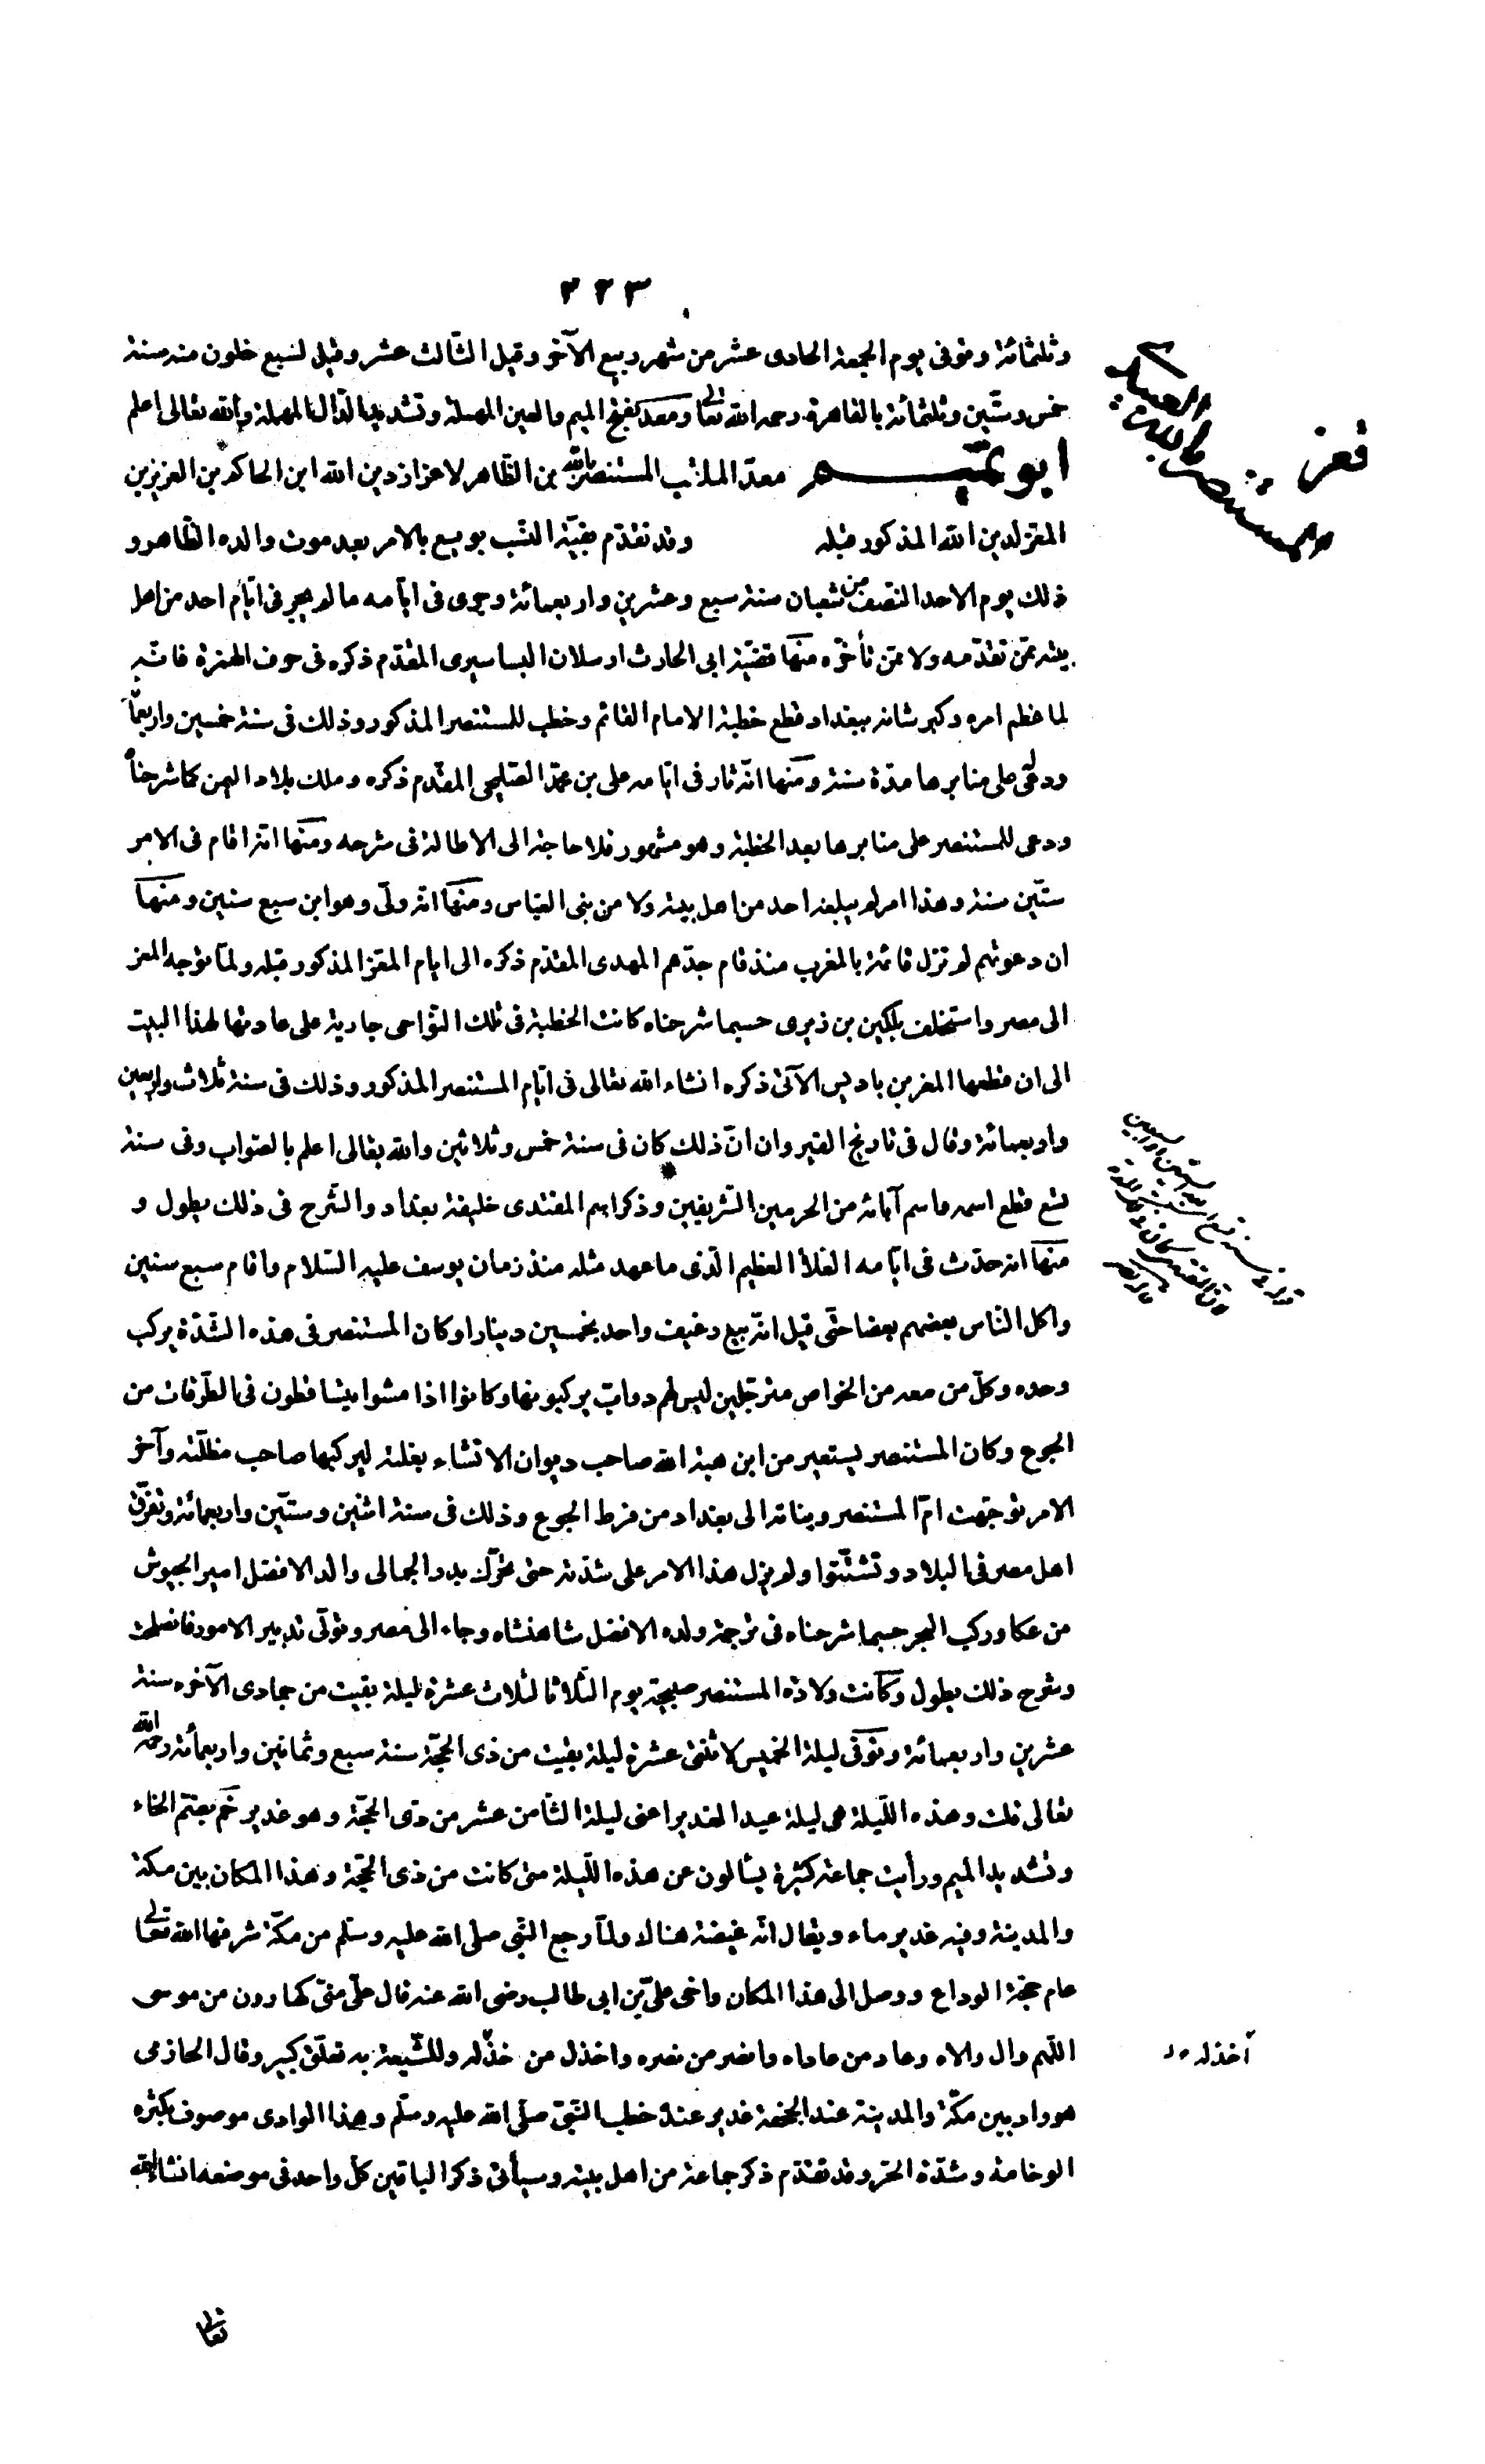 ٢٢٣
وثلثمائة وتوفى يوم الجمعة الحادى عشر من شهر ربيع الآخر وقيل الثالث عشر وقيل لسبع خلون منه سنة
خمس وستّين وثلثمائة بالقاهرة رحمه الله تعالى ومعد بفتح الميم والعين المهملة وتشديد الدال المهملة والله تعالى اعلم
ابو تميم معدّ الملقب المستنصر بالله بن الظاهر لاعزاز دين الله ابن الحاكم بن العزيز بن
المعز لدين الله المذكور قبله وقد تقدّم بقيّة النسب بويع بالامر بعد موت والده الظاهر و
ذلك يوم الاحد النصف من شعبان سنة سبع وعشرين واربعمائة وجرى فى ايّامه ما لم يجر فى ايّام احد من اهل
بيته ممّن تقدّمه ولا ممّن تأخّره منها قضيّة ابى الحارث ارسلان البساسيرى المقدّم ذكره فى حرف الهمزة فانّه
لما عظم امره وكبر شانه ببغداد قطع خطبة الامام القائم وخطب للمستنصر المذكور وذلك فى سنة خمسين واربعمائة
ودعى له على منابرها مدّة سنة ومنها انّه ثار فى ايّامه على بن محمّد الصليحى المقدّم ذكره وملك بلاد اليمن كما شرحناه
ودعى للمستنصر على منابرها بعد الخطبة وهو مشهور فلا حاجة الى الاطالة فى شرحه ومنها انّه اقام فى الامر
ستّين سنة وهذا امر لم يبلغه احد من اهل بيته ولا من بنى العبّاس ومنها انّه ولّى وهو ابن سبع سنين ومنها
ان دعوتهم لم تزل قائمة بالمغرب منذ قام جدّهم المهدى المقدّم ذكره الى ايام المعزّ المذكور قبله ولمّا توجه المعز
الى مصر واستخلف بلكين بن زيرى حسبما شرحناه كانت الخطبة فى تلك النّواحى جارية على عادتها لهذا البيت
الى ان قطعها المعز بن باديس الآتى ذكره انشاء الله تعالى فى ايّام المستنصر المذكور وذلك فى سنة ثلاث واربعين
واربعمائة وقال فى تاريخ القيروان انّ ذلك كان فى سنة خمس وثلاثين والله تعالى اعلم بالصواب وفى سنة
تسع قطع اسمه واسم آبائه من الحرمين الشّريفين وذكر اسم المقتدى خليفة بغداد والشّرح فى ذلك يطول و
منها انه حدث فى ايّامه الغلاء العظيم الّذى ما عهد مثله منذ زمان يوسف عليه السّلام واقام سبع سنين
واكل النّاس بعضهم بعضا حتّى قيل انّه بيع رغيف واحد بخمسين دينارا وكان المستنصر فى هذه الشّدّة يركب
وحده وكلّ من معه من الخواص مترجّلين ليس لهم دوابّ يركبونها وكانوا اذا مشوا يتساقطون فى الطّرقات من
الجوع وكان المستنصر يستعير من ابن هبة الله صاحب ديوان الانشاء بغلته ليركبها صاحب مظلّته وآخر
الامر توجّهت امّ المستنصر وبناته الى بغداد من فرط الجوع وذلك فى سنة اثنين وستّين واربعمائة وتفرّق
اهل مصر فى البلاد وتشتّتوا ولم يزل هذا الامر على شدّته حتى تحرّك بدر الجمالى والد الافضل امير الجيوش
من عكا وركب البحر حسبما شرحناه فى ترجمة ولده الافضل شاهنشاه وجاء الى مصر وتولّى تدبير الامور فانصلحت
وشرح ذلك يطول وكانت ولادة المستنصر صبيحة يوم الثّلاثا لثلاث عشرة ليلة بقيت من جمادى الآخره سنة
عشرين واربعمائة وتوفّى ليلة الخميس لاثنتى عشرة ليلة بقيت من ذى الحجّة سنة سبع وثمانين واربعمأئة رحمه الله
تعالى قلت وهذه اللّيلة هى ليلة عيد الغدير اعنى ليلة الثّامن عشر من ذى الحجّة وهو غدير خمّ بضمّ الخاء
وتشديد الميم ورأيت جماعة كثيرة يسألون عن هذه اللّيلة متى كانت من ذى الحجّة وهذا المكان بين مكة
والمدينة وفيه غدير ماء ويقال انّه غيضة هناك ولمّا رجع النّبى صلى الله عليه وسلّم من مكّة شرفها الله تعالى
عام حجّة الوداع ووصل الى هذا المكان واخى علىّ بن ابى طالب رضى الله عنه قال علىّ منّى كهارون من موسى
اللّهم وال من والاه وعاد من عاداه وانصر من نصره واخذل من خذله وللشّيعة به تعلّق كبير وقال الحازمى
هو واد بين مكّة والمدينة عند الجحفة غدير عنده خطب النّبىّ صلّى الله عليه وسلّم وهذا الوادى موصوف بكثرة
الوخامة وشدّة الحرّ وقد تقدّم ذكر جماعة من اهل بيته وسيأتى ذكر الباقين كلّ واحد فى موضعه انشاء الله
تعالى
المستنصر بالله العبيدى
أخذله